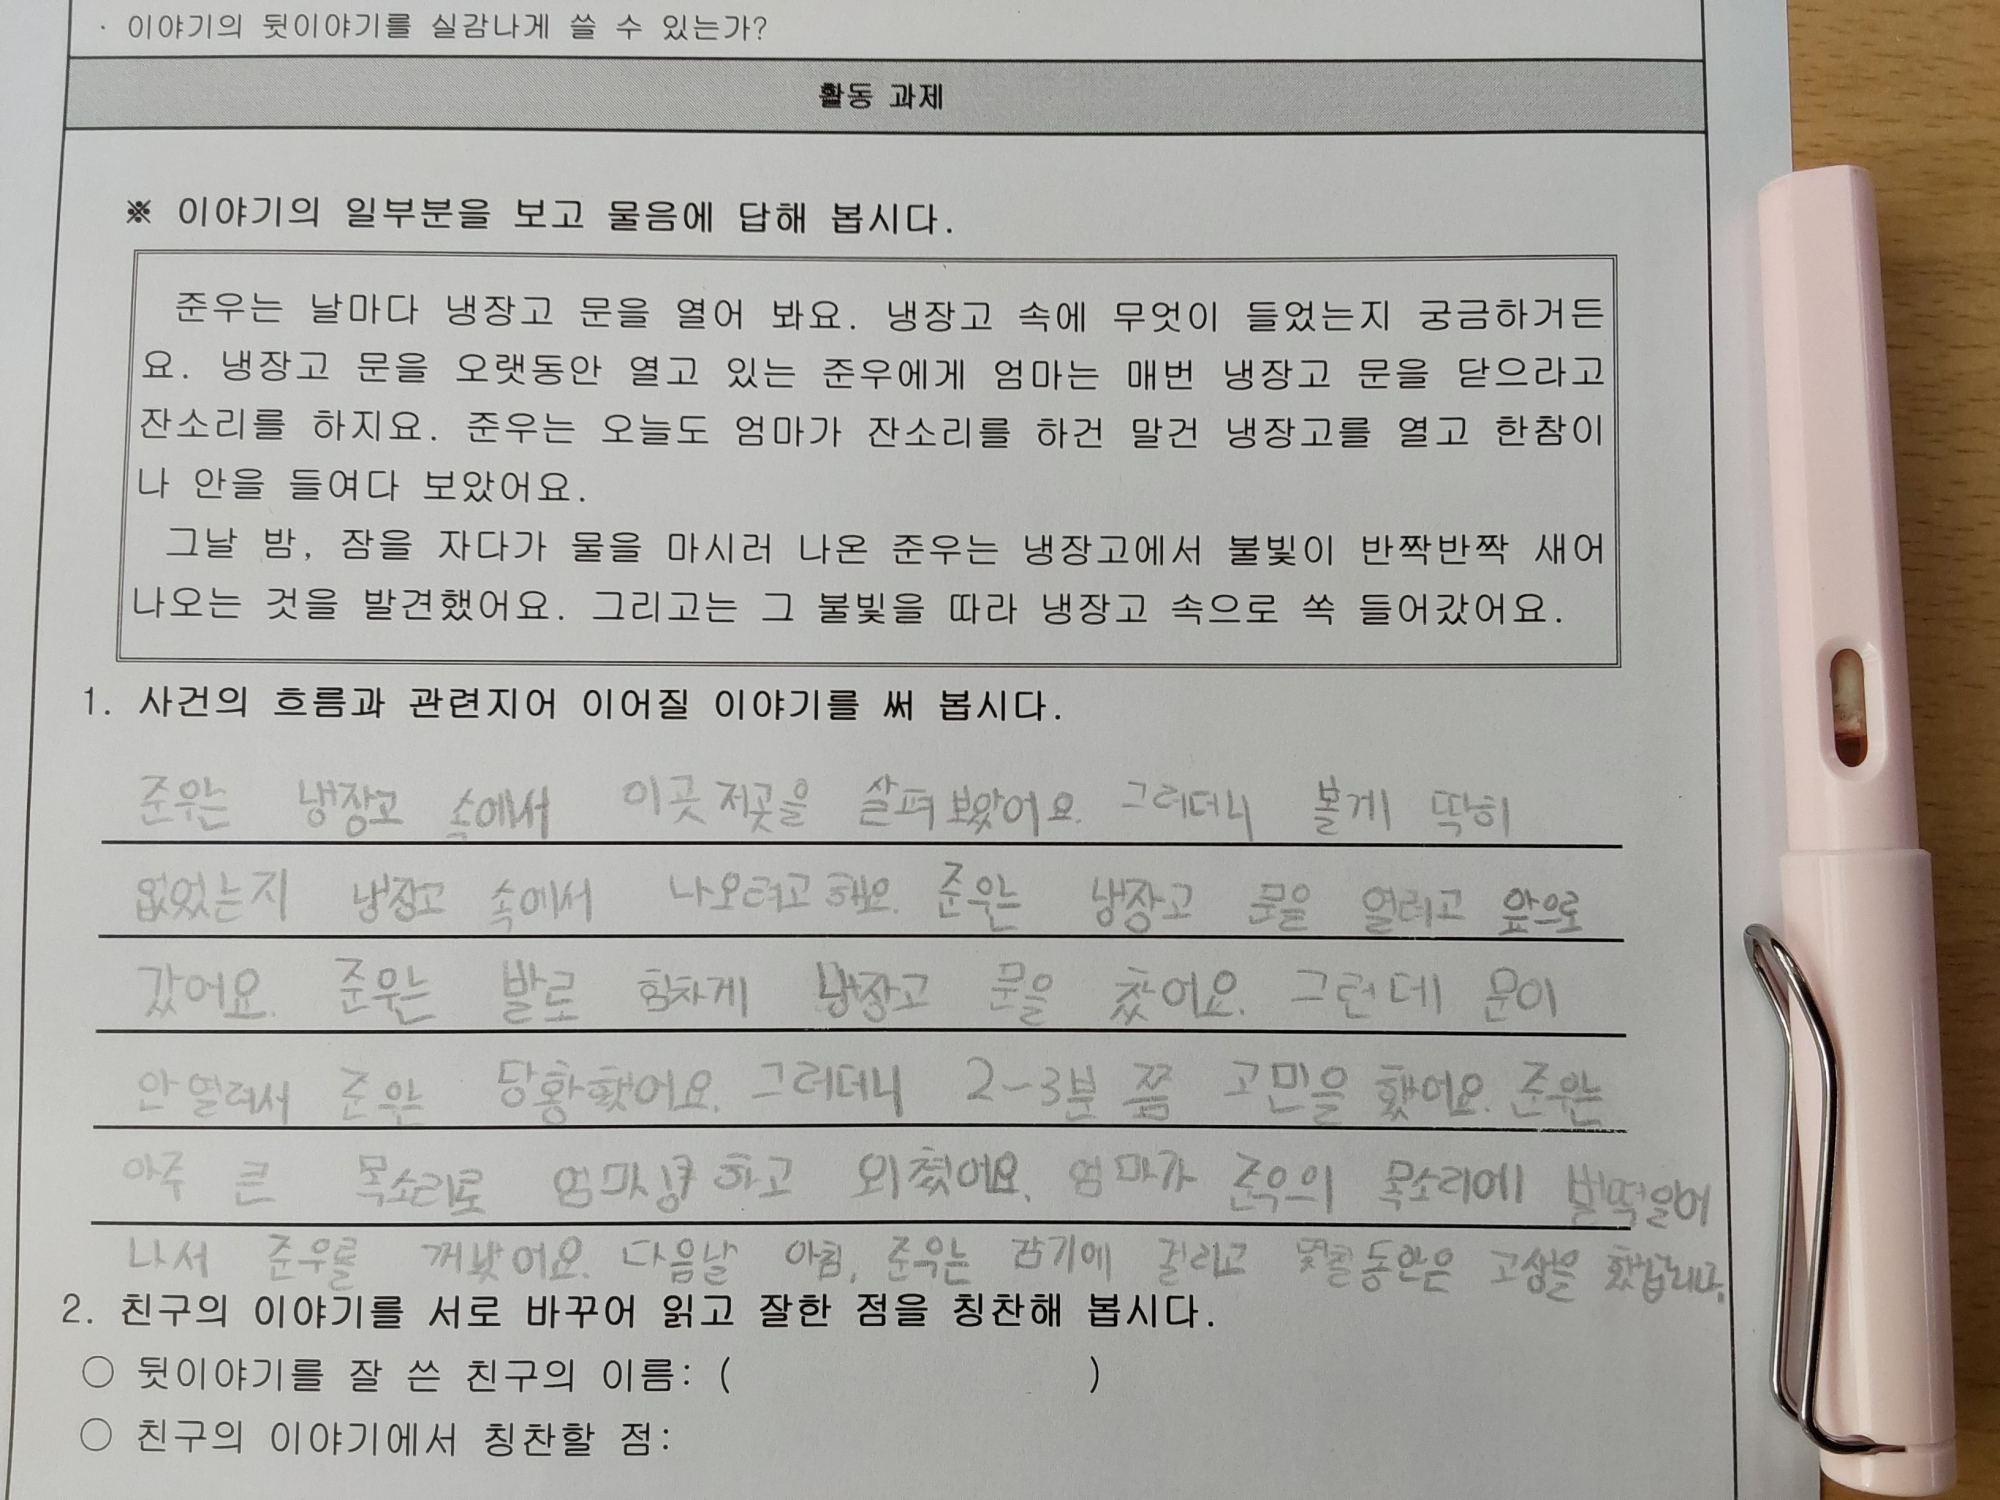 · 이야기의 뒷이야기를 실감나게 쓸 수 있는가?
활동 과제
※ 이야기의 일부분을 보고 물음에 답해 봅시다.
준우는 날마다 냉장고 문을 열어 봐요. 냉장고 속에 무엇이 들었는지 궁금하거든
요. 냉장고 문을 오랫동안 열고 있는 준우에게 엄마는 매번 냉장고 문을 닫으라고
잔소리를 하지요. 준우는 오늘도 엄마가 잔소리를 하건 말건 냉장고를 열고 한참이
나 안을 들여다 보았어요.
그날 밤, 잠을 자다가 물을 마시러 나온 준우는 냉장고에서 불빛이 반짝반짝 새어
나오는 것을 발견했어요. 그리고는 그 불빛을 따라 냉장고 속으로 쏙 들어갔어요.
1. 사건의 흐름과 관련지어 이어질 이야기를 써 봅시다.
준우는 냉장고 속에서 이곳저곳을 살펴보았어요. 그러더니 볼게 딱히
없었는지 냉장고 속에서 나오려고 해요. 준우는 냉장고 문을 열려고 앞으로
갔어요. 준우는 발로 힘차게 냉장고 문을 찼어요. 그런데 문이
안열려서 준우는 당황했어요. 그러더니 2~3분 쯤 고민을 했어요. 준우는
아주 큰 목소리로 엄마싱캬 하고 외쳤어요. 엄마가 준우의 목소리에 벌떡일어
나서 준우를 꺼냈어요. 다음날 아침, 준우는 감기에 걸리고 몇칠동안은 고생을 했답니다.
2. 친구의 이야기를 서로 바꾸어 읽고 잘한 점을 칭찬해 봅시다.
○ 뒷이야기를 잘 쓴 친구의 이름: ( )
○ 친구의 이야기에서 칭찬할 점: